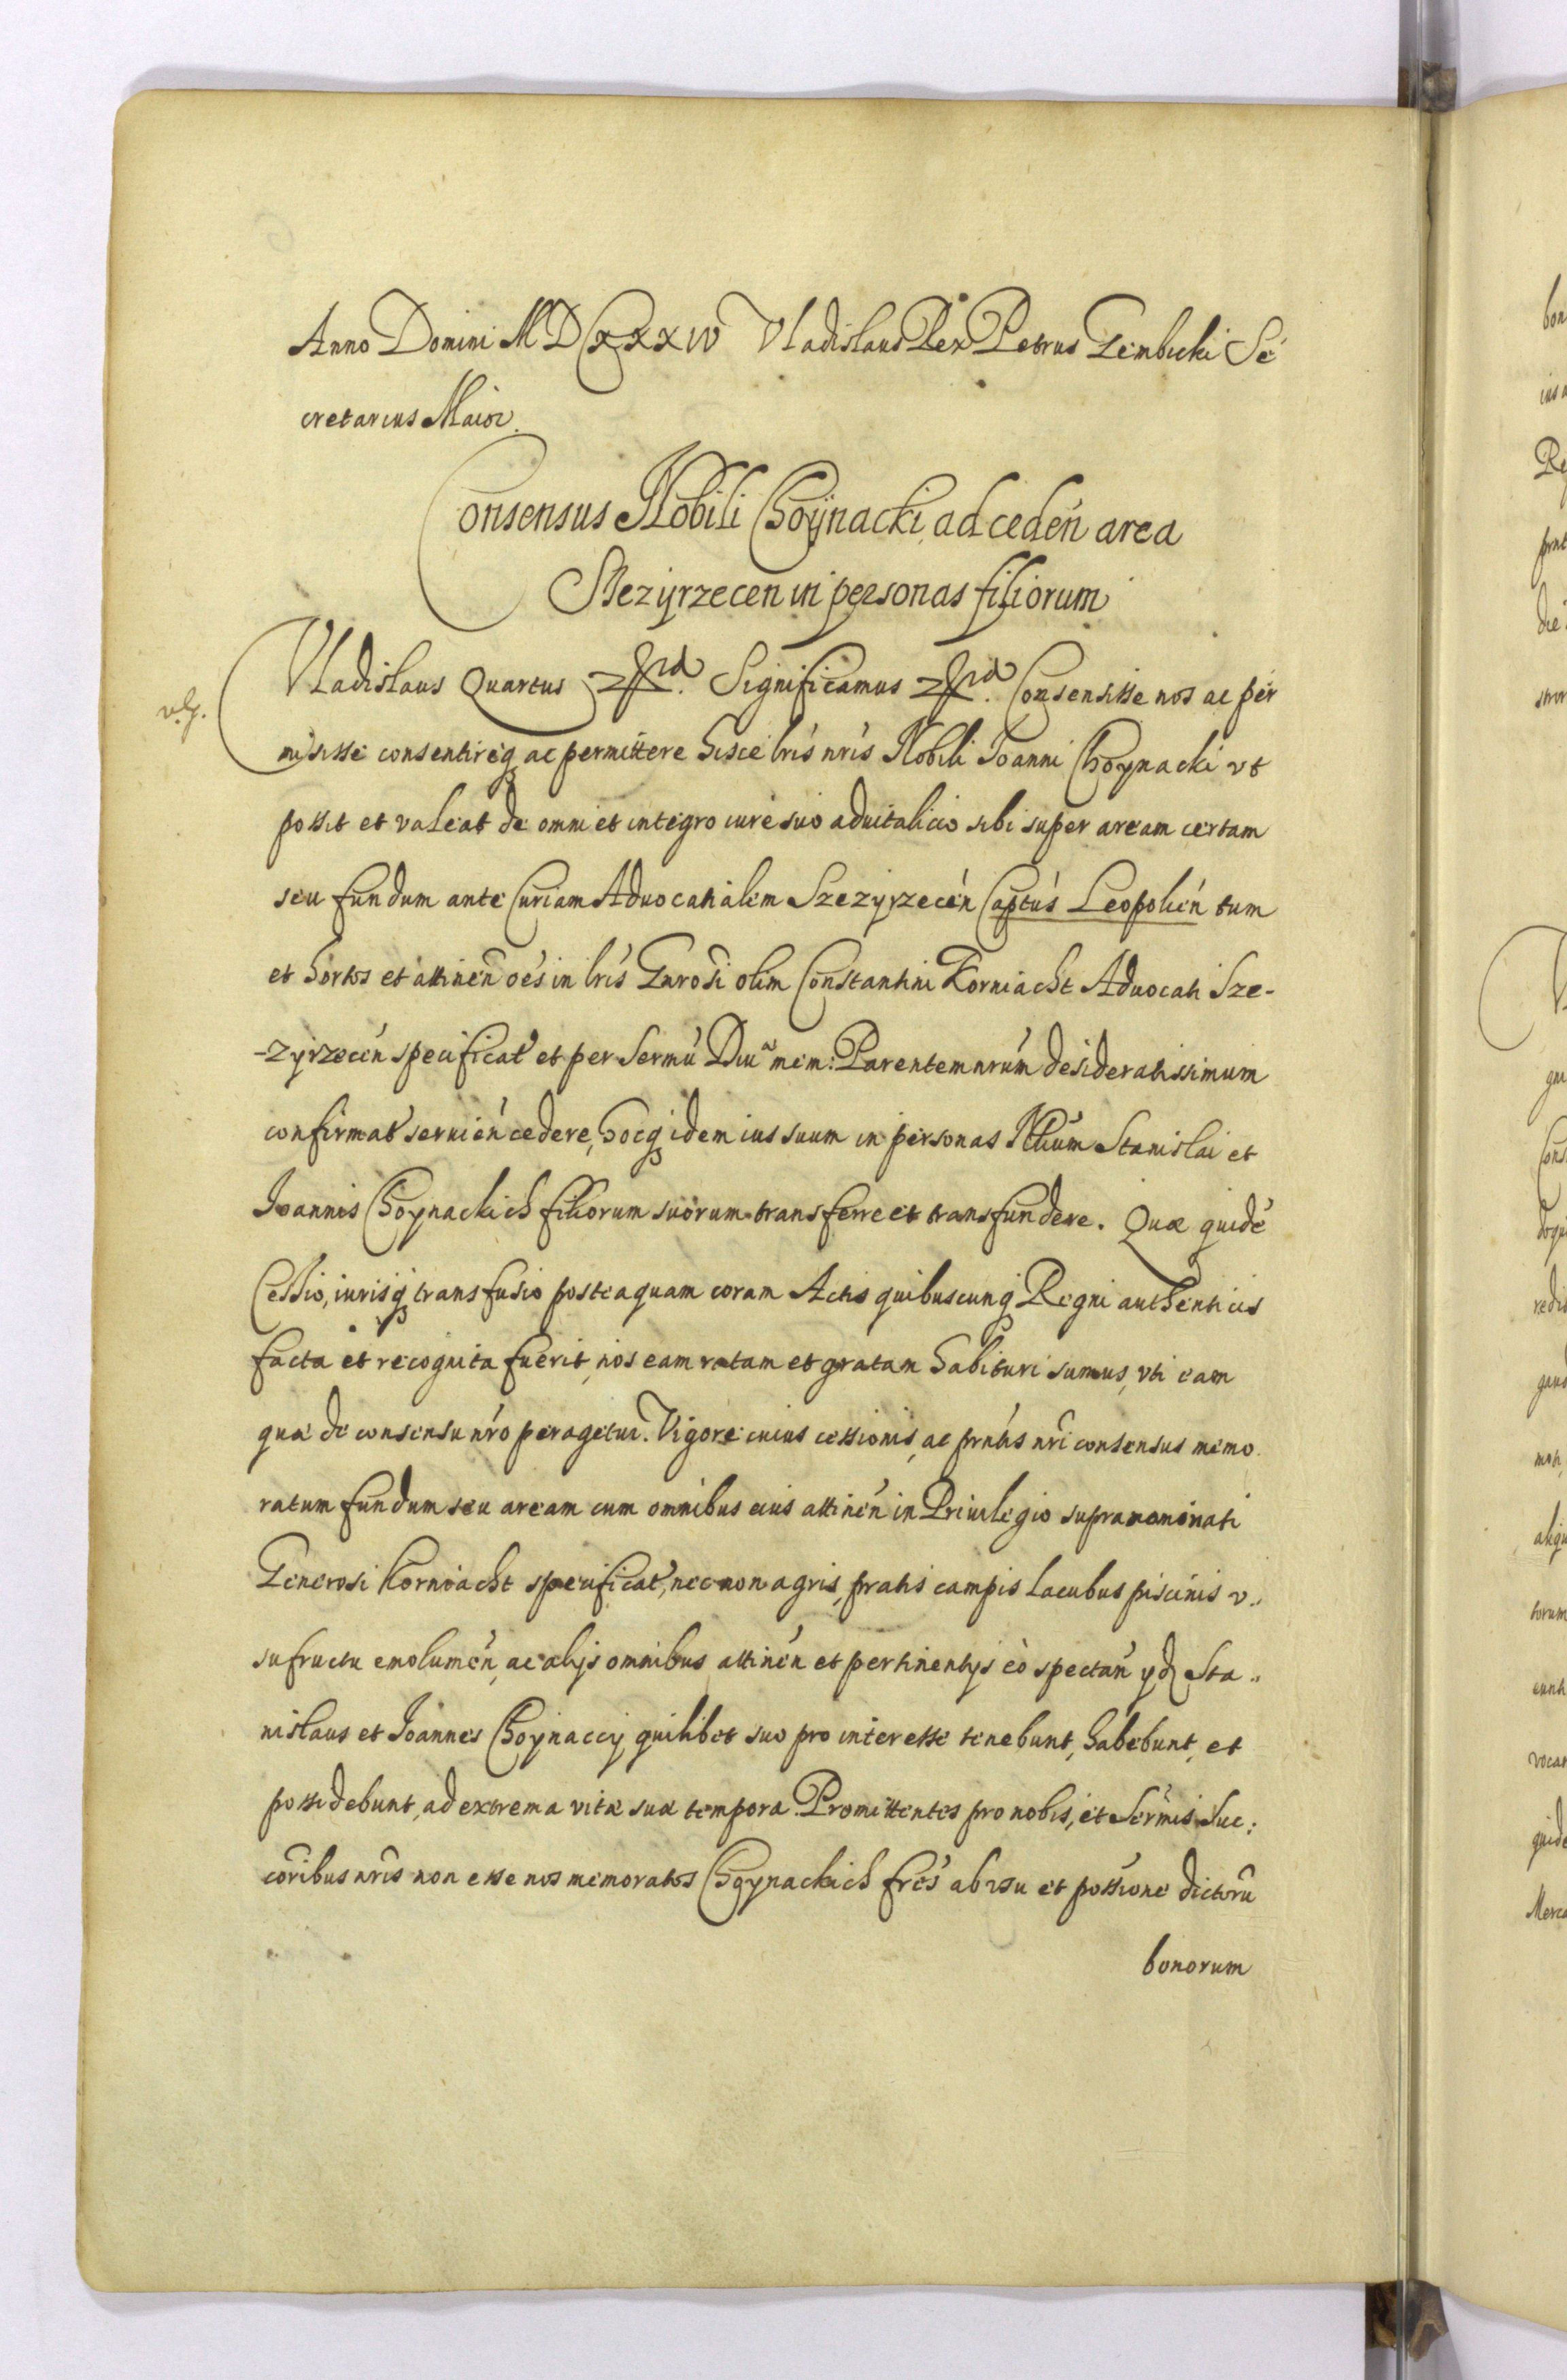 Anno Domini MDCXXXIV Vladislaus Rex Petrus Gembicki Se
cretarius Maior.
Consensus Nobili Choÿnacki ad cedeń area
Sczezyrzecen in personas filiorum
Vladislaus Quartus Significamus Consensisse nos ac per
v.g.
misisse consentireq ac permittere hisce lris nris Nobili Joanni Choynacki vt
possit et valeat de omni et integro iure suo aduitalicio sibi super aream certam
seu fundum ante Curiam Aduocatialem Szezyrzecen Captus Leopolien tum
et hortos et attinen oes in lris Gnrosi olim Constantini Korniacht Aduocati Sze-
-zyrzecen specificat et per Sermu Diu mem: Parentem nrum desideratissimum
confirmat seruien cedere, hocq idem ius suum in personas Nblium Stanislai et
Joannis Choynackich filiorum suorum transferre et transfundere. Quæ quide
Cessio, iurisq transfusio posteaquam coram Actis quibuscunq Regni authenticis
facta et recognita fuerit, nos eam ratam et gratam habituri sumus, vti eam
quæ de consensu nro peragetur. Vigore cuius cessionis, ac prntis nri consensus memo
ratum fundum seu aream cum omnibus eius attinen in Priuilegio supranominati
Generosi Korniacht specificat, nec non agris, pratis campis lacubus piscinis v..
sufructu emolumen, ac alijs omnibus attinen et pertinentijs eò spectan yd Sta..
nislaus et Joannes Choynaccy quilibet suo pro interesse tenebunt, habebunt, et
possidebunt, ad extrema vitæ suæ tempora. Promittentes pro nobis, et Sermis Suc:
coribus nris non esse nos memoratos Choynackich fres ab vsu et possione dictoru
bonorum